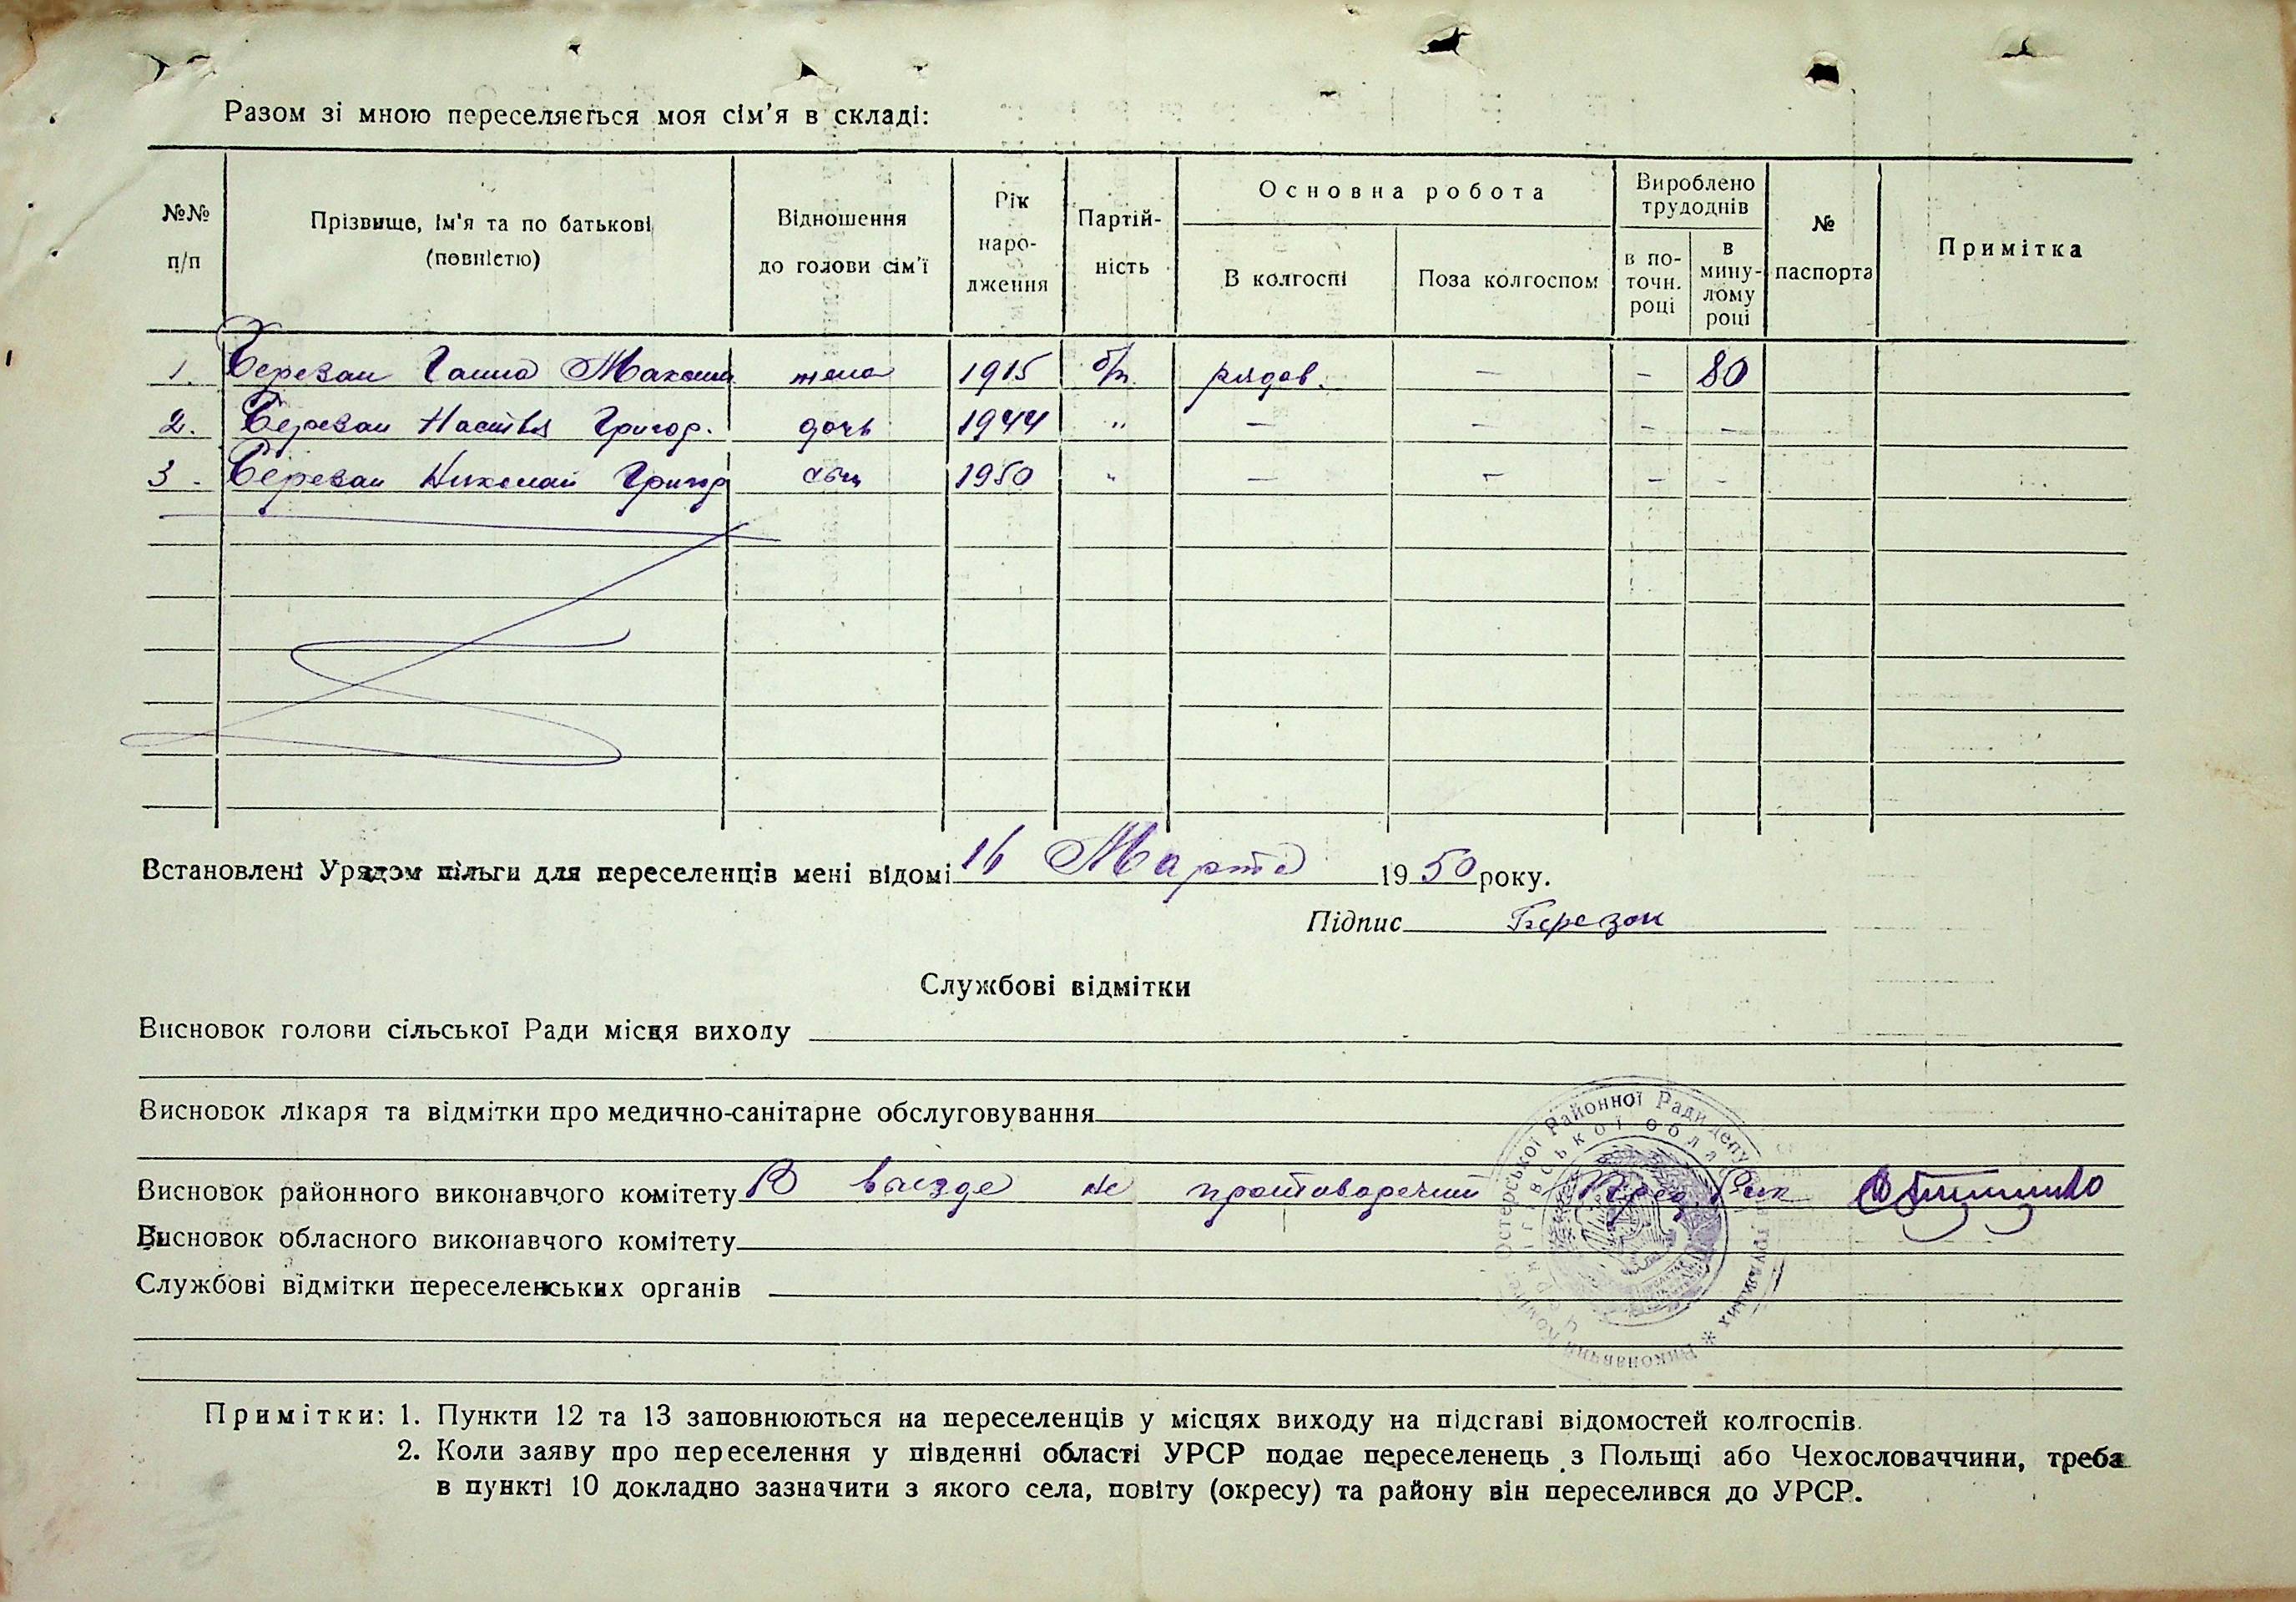 Разом зі мною переселяється моя сім'я в складі:
№№ п/п
Прізвище, ім'я та по батькові (повністю)
Відношення до голови сім'ї
Рік народження
Партійність
Основна робота
В колгоспі
Поза колгоспом
Вироблено трудоднів
в поточн. році
в минулому році
№ паспорта
Примітка
1. Березан Ганна Максим жена 1915 б/п. рядов. — – 80
2. Березан Настья Григор. дочь 1944 " — — – –
3. Березан Николай Григор сын 1950 " — – – –
Встановлені Урядом пільги для переселенців мені відомі 16 Марта 1950 року.
Підпис Березан
Службові відмітки
Висновок голови сільської Ради місця виходу
Висновок лікаря та відмітки про медично-санітарне обслуговування
Висновок районного виконавчого комітету В выезде не
Висновок обласного виконавчого комітету
Службові відмітки переселенських органів
Виконавчий Комітет Остерської Районної Ради депутатів трудящих *
Чернігівської обл.
Примітки: 1. Пункти 12 та 13 заповнюються на переселенців у місцях виходу на підставі відомостей колгоспів.
2. Коли заяву про переселення у південні області УРСР подає переселенець з Польщі або Чехословаччини, треба
в пункті 10 докладно зазначити з якого села, повіту (окресу) та району він переселився до УРСР.